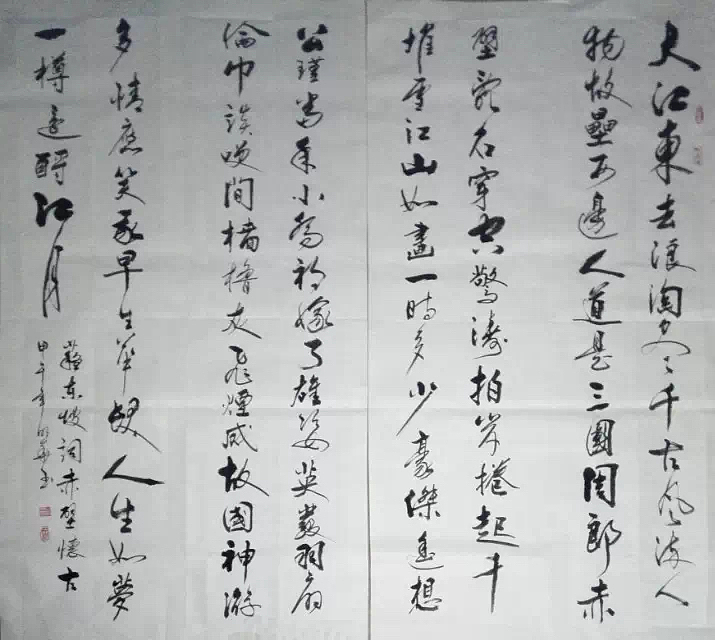 大江東去浪淘尽千古風流人
物故壘西邊人道是三國周郎赤
壁亂石穿空驚濤拍岸捲起千
堆雪江山如畫一時多少豪傑遙想
公瑾當年小喬初嫁了雄姿英發羽扇
綸巾談笑間檣櫓灰飛煙滅故國神游
多情應笑我早生華髮人生如夢
一樽還酹江月
蘇東坡詞赤壁懷古
甲午年明華書